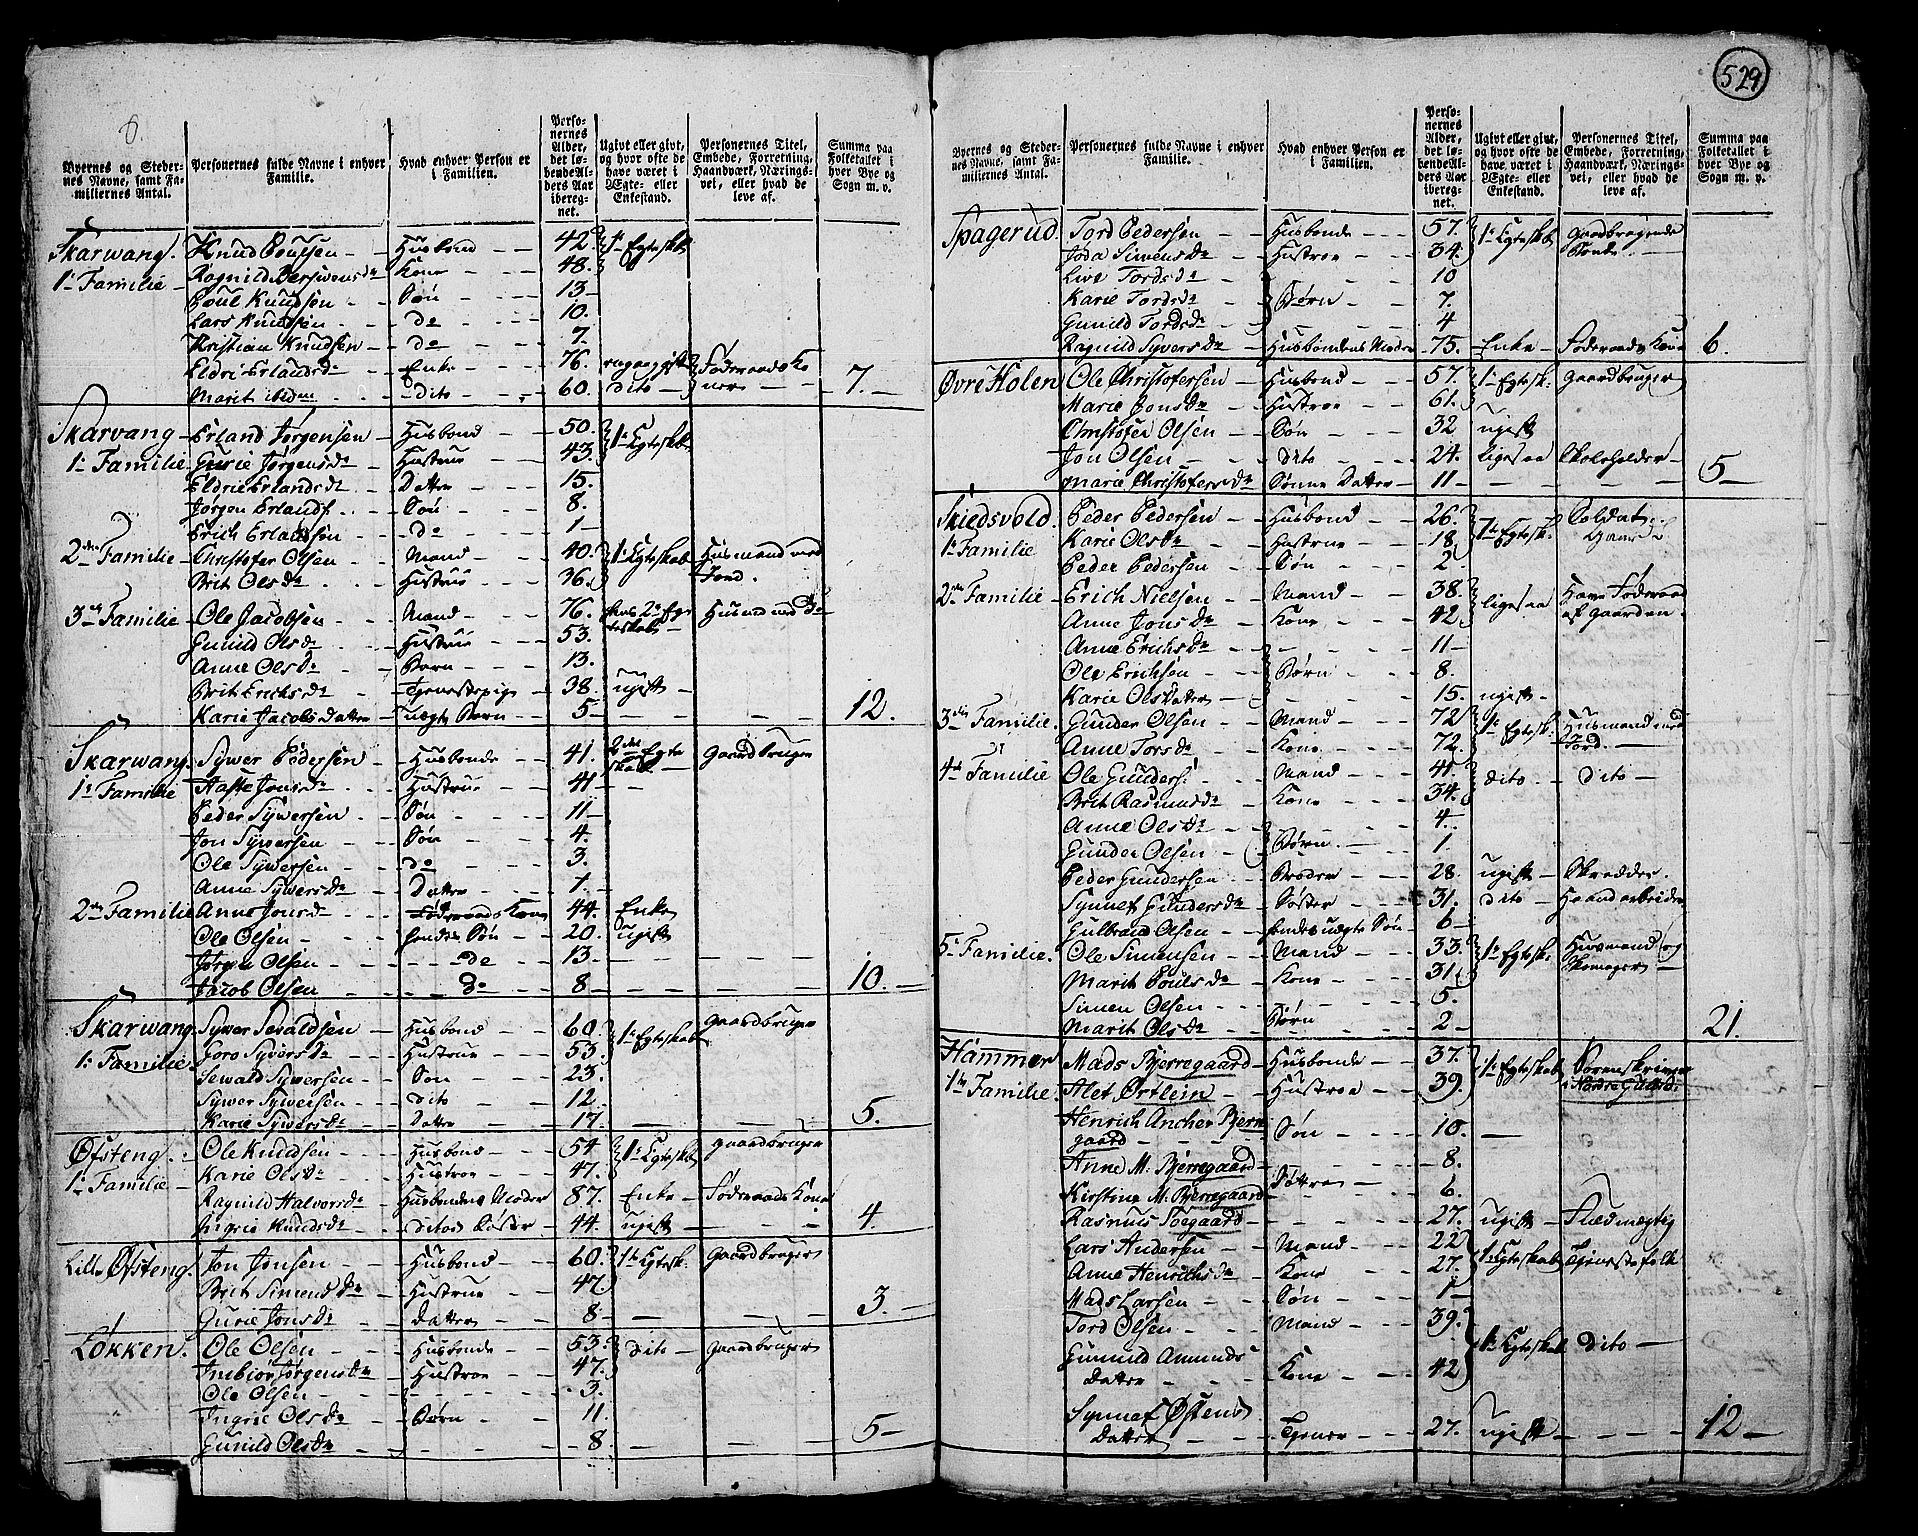 529
Byernes og Stedernes Navne, samt Familiernes Antal. Personernes fulde Navne i enhver Familie. Hvad enhver Person er i Familien. Personernes Alder, det løbende Alders Aar iberegnet. Ugivt eller givt, og hvor ofte de have været i Ægte- eller Enkestand. Personernes Titel, Embede, Forretning, Haandværk, Næringsvei, eller hvad de leve af. Summa paa Folketallet i hver Bye og Sogn m. v.
Skarwang. Knud Poulsen Husbond 42 1te Egteskab
1te Familie Ragnild Kone 48
Poul Knudsen Søn 13
Lars Knudsen do 10
Kristian Knudsen do 7
Eldri Erlandsdr Enke 76
Marit ibidem dito 60 dito 7
Skarvang Erland Jørgensen Husbond 50 1te Egteskab
1te Familie Gurie Jørgensdr Hustrue 43
Eldrie Erlandsdr Datter 15
Jørgen Erlands. Søn 8
Erich Erlandsen do 1
2den Familie Christofer Olsen Mand 40 1te Egteskab Husmand med Jord.
Brit Olsdr Hustrue 36
3die Familie Ole Jacobsen Mand 76
Gunild Olsdr Hustrue 53
Anne Olsdr Barn 13
Brit Erichsdr Tjenestepige 38 ugift
Karie Jacobs Datter uægte Barn 5 12
Skarwang. Sywer Pedersen Husbonde 41 2det Egteskab Gaardbruger
1te Familie Jonsdr Hustrue 41
Peder Sywersen Søn 11
Jon Sywersen Søn 4
Ole Sywersen do 3
Anne Sywersdr Datter 1
2den Familie Anne Jonsdr Føderaads Kone 44 Enke
Ole Olsen hendes Søn 20 ugift
Jørgen Olsen do 13
Jacob Olsen do 8 10
Skarwang. Sywer Sevaldsen Husbond 60 1te Egteskab Gaardbruger
1te Familie. Goro Syversdr Hustrue 53
Sewald Sywersen Søn 23
Sywer Sywersen dito 12
Karie Sywersdr Datter 17 5
Øfsteng. Ole Knudsen Husbond 54 1te Egteskab Gaardbruger
1te Familie Karie Olsdr Hustroe 47
Ragnild Halvorsdr Husbondens Moder 87 Enke Føderaads Kone
Ingrie Knudsdr ditos Søster 44 ugift 4
Lille Øfsteng. Jon Jonsen Husbond 60 1te Egtesk. Gaardbruger
Brit Simensdr Hustrue 47
Gurie Jonsdr Datter 8 3
Løkken. Ole Olsen Husbonde 53 dito Gaardbruger
Jørgensdr Hustroe 47
Ole Olsen 3
Ingrie Olsdr Børn 11
Gunild Olsdr 8 5
Byernes og Stedernes Navne, samt Familiernes Antal. Personernes fulde Navne i enhver Familie. Hvad enhver Person er i Familien. Personernes Alder, det løbende Alders Aar iberegnet. Ugivt eller givt, og hvor ofte de have været i Ægte- eller Enkestand. Personernes Titel, Embede, Forretning, Haandværk, Næringsvei, eller hvad de leve af. Summa paa Folketallet i hver Bye og Sogn m. v.
Spagerud Tord Pedersen Husbonde 57 1te Egteskab Gaardbrugende Bonde
Joda Simensdr Hustroe 34
Live Tordsdr 10
Karie Tordsdr Børn 7
Gunild Tordsdr 4
Ragnild Syversdr Husbondens Moder 75 Enke Føderaads Kone 6
Øvre Holen Ole Christofersen Husbond 57 1te Egtesk. Gaardbruger
Marie Jonsdr Hustroe 61
Christofer Olsen Søn 32 ugift
Jon Olsen dito 24 ligesaa Skoleholder
Marie Christofersdr Sønne Datter 11 5
Skiedsvold. Peder Pedersen Husbond 26 1te Egtesk. Soldat
1te Familie Karie Olsdr Hustrue 18
Peder Pedersen Søn 2
2den Familie Erich Nielsen Mand 38 ligesaa Have Føderaad af Gaarden
Anne Jonsdr Kone 42
Anne Erichsdr 11
Ole Erichsen Børn 8
Karie Olsdatter 15 ugift
3die Familie. Gunder Olsen Mand 72 1te Egtesk. Husmand med Jord.
Anne Torsdr Kone 72
4de Familie Ole Gunders. Mand 41 dito dito
Brit Rasmusdr Kone 34
Anne Olsdr 4
Gunder Olsen Børn 1
Peder Gundersen Broder 28 ugift Skredder
Synnef Gundersdr Søster 31 dito Haandarbeide
Gulbrand Olsen hendes uægte Søn 6
5te Familie. Ole Simensen Mand 33 1te Egtesk. Husmand og Skomager
Marit Poulsdr Kone 31
Simen Olsen 5
Marit Olsdr Børn 2 21
Hammer Mads Bjerregaard Husbonde 37 1te Egteskab Sorenskriver i Nordre Gulbd.
1te Familie. Alet Ørtlein Hustroe 39
Henrich Ancher Bjerregaard Søn 10
Anne M. Bjerregaard 8
Kirstine M. Bjerregaard Døttre 6
Rasmus Soegaard 27 ugift Fuldmægtig
Lars Andersen Mand 22 1te Egteskab Tjenestefolk
Anne Henrichsdr Kone 27
Mads Larsen Søn 1
Tord Olsen Mand 39 1te Egteskab dito
Gunnild Amunds Datter Kone 42
Synnef Østens Datter Tjener 27 ugift 12